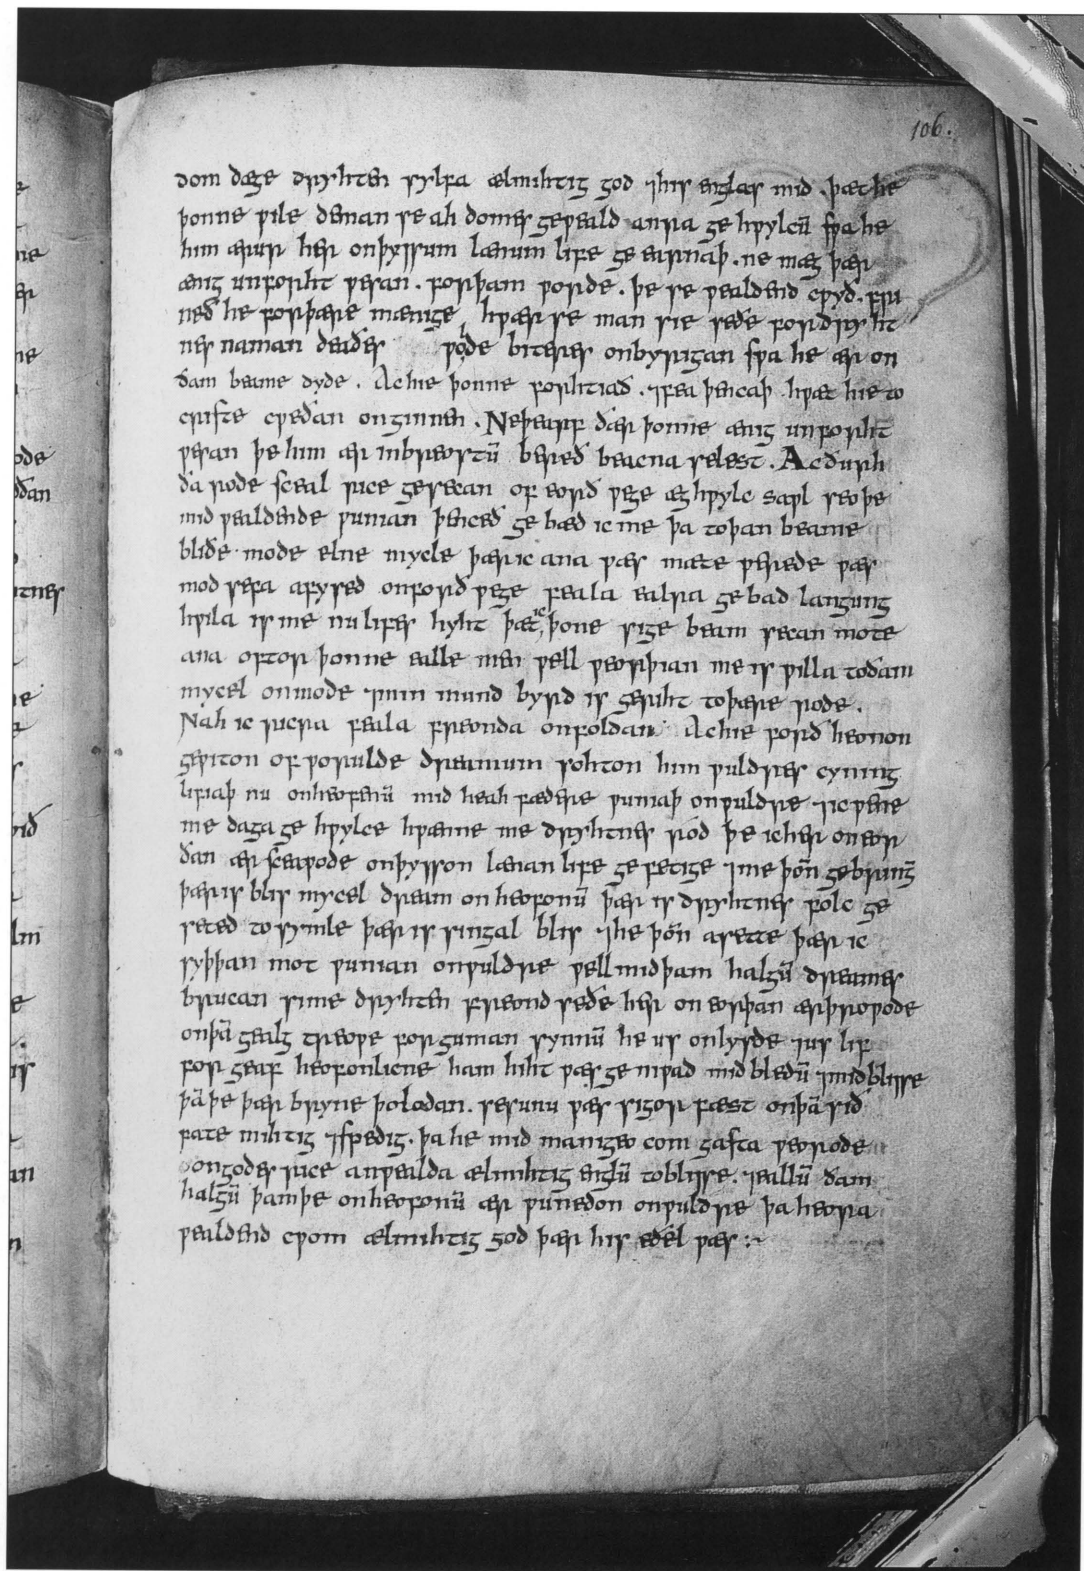 106.
dom dæge dryhten sylfa ælmihtig god ⁊his englas mid . þæt he
þonne ƿile deman se ah domes geƿeald anra ge hƿylcū sƿa he
him ærur her onþyssum lænum life ge earnaþ . ne mæg þær
ænig unforht ƿesan . forþam ƿorde . þe se ƿealdend cƿyð . fri
neð he forþære mænige hƿær se man sie seðe fordryht
nes naman deaðes ƿolde biteres onbyrigan sƿa he ær on
ðam beame dyde . Achie þonne forhtiað . ⁊fea þencaþ hƿæt hie to
criste cƿeðan onginnen . Neþearf ðær þonne ænig unforht
ƿesan þe him ær inbreostū bereð beacna selest . Acðurh
ða rode sceal rice gesecan of eorð ƿege æghƿylc saƿl seoþe
mid ƿealdende ƿunian þenceð ge bæd ic me þa toþan beame
bliðe mode elne mycle þær ic ana ƿæs mæte ƿerede ƿæs
mod sefa afysed onforð ƿege feala ealra ge bad langung
hƿila is me nu lifes hyht þæt ic þone sige beam secan mote
ana oftor þonne ealle men ƿell ƿeorþian me is ƿilla toðam
mycel onmode ⁊min mund byrd is geriht toþære rode .
Nah ic ricra feala freonda onfoldan Achie forð heonon
geƿiton of ƿorulde dreamum sohton him ƿuldres cyning
lifiaþ nu onheofenū mid heah fædere ƿuniaþ onƿuldre ⁊ic ƿene
me daga ge hƿylce hƿænne me dryhtnes rod þe ic her on eor
ðan ær sceaƿode onþysson lænan life ge fetige ⁊me þoñ gebringe
þær is blis mycel dream on heofonū þær is dryhtnes folc ge
seted to symle þær is singal blis ⁊he þoñ asette þær ic
syþþan mot ƿunian onƿuldre ƿell midþam halgū dreames
brucan sime dryhten freond seðe her on eorþan ærþroƿode
onþā gealg treoƿe for guman synnū he us onlysde ⁊us lif
for geaf heofonlicne ham hiht ƿæs ge niƿad mid bledū ⁊mid blisse
þā þe þær bryne þolodan . se sunu ƿæs sigor fæst onþā sið
fate mihtig ⁊spedig . þa he mid manigeo com gasta ƿeorode
ongodes rice anƿealda ælmihtig englū toblisse . ⁊eallū ðam
halgū þamþe onheofonū ær ƿunedon onƿuldre þa heora
ƿealdend cƿom ælmihtig god þær his eðel ƿæs :~